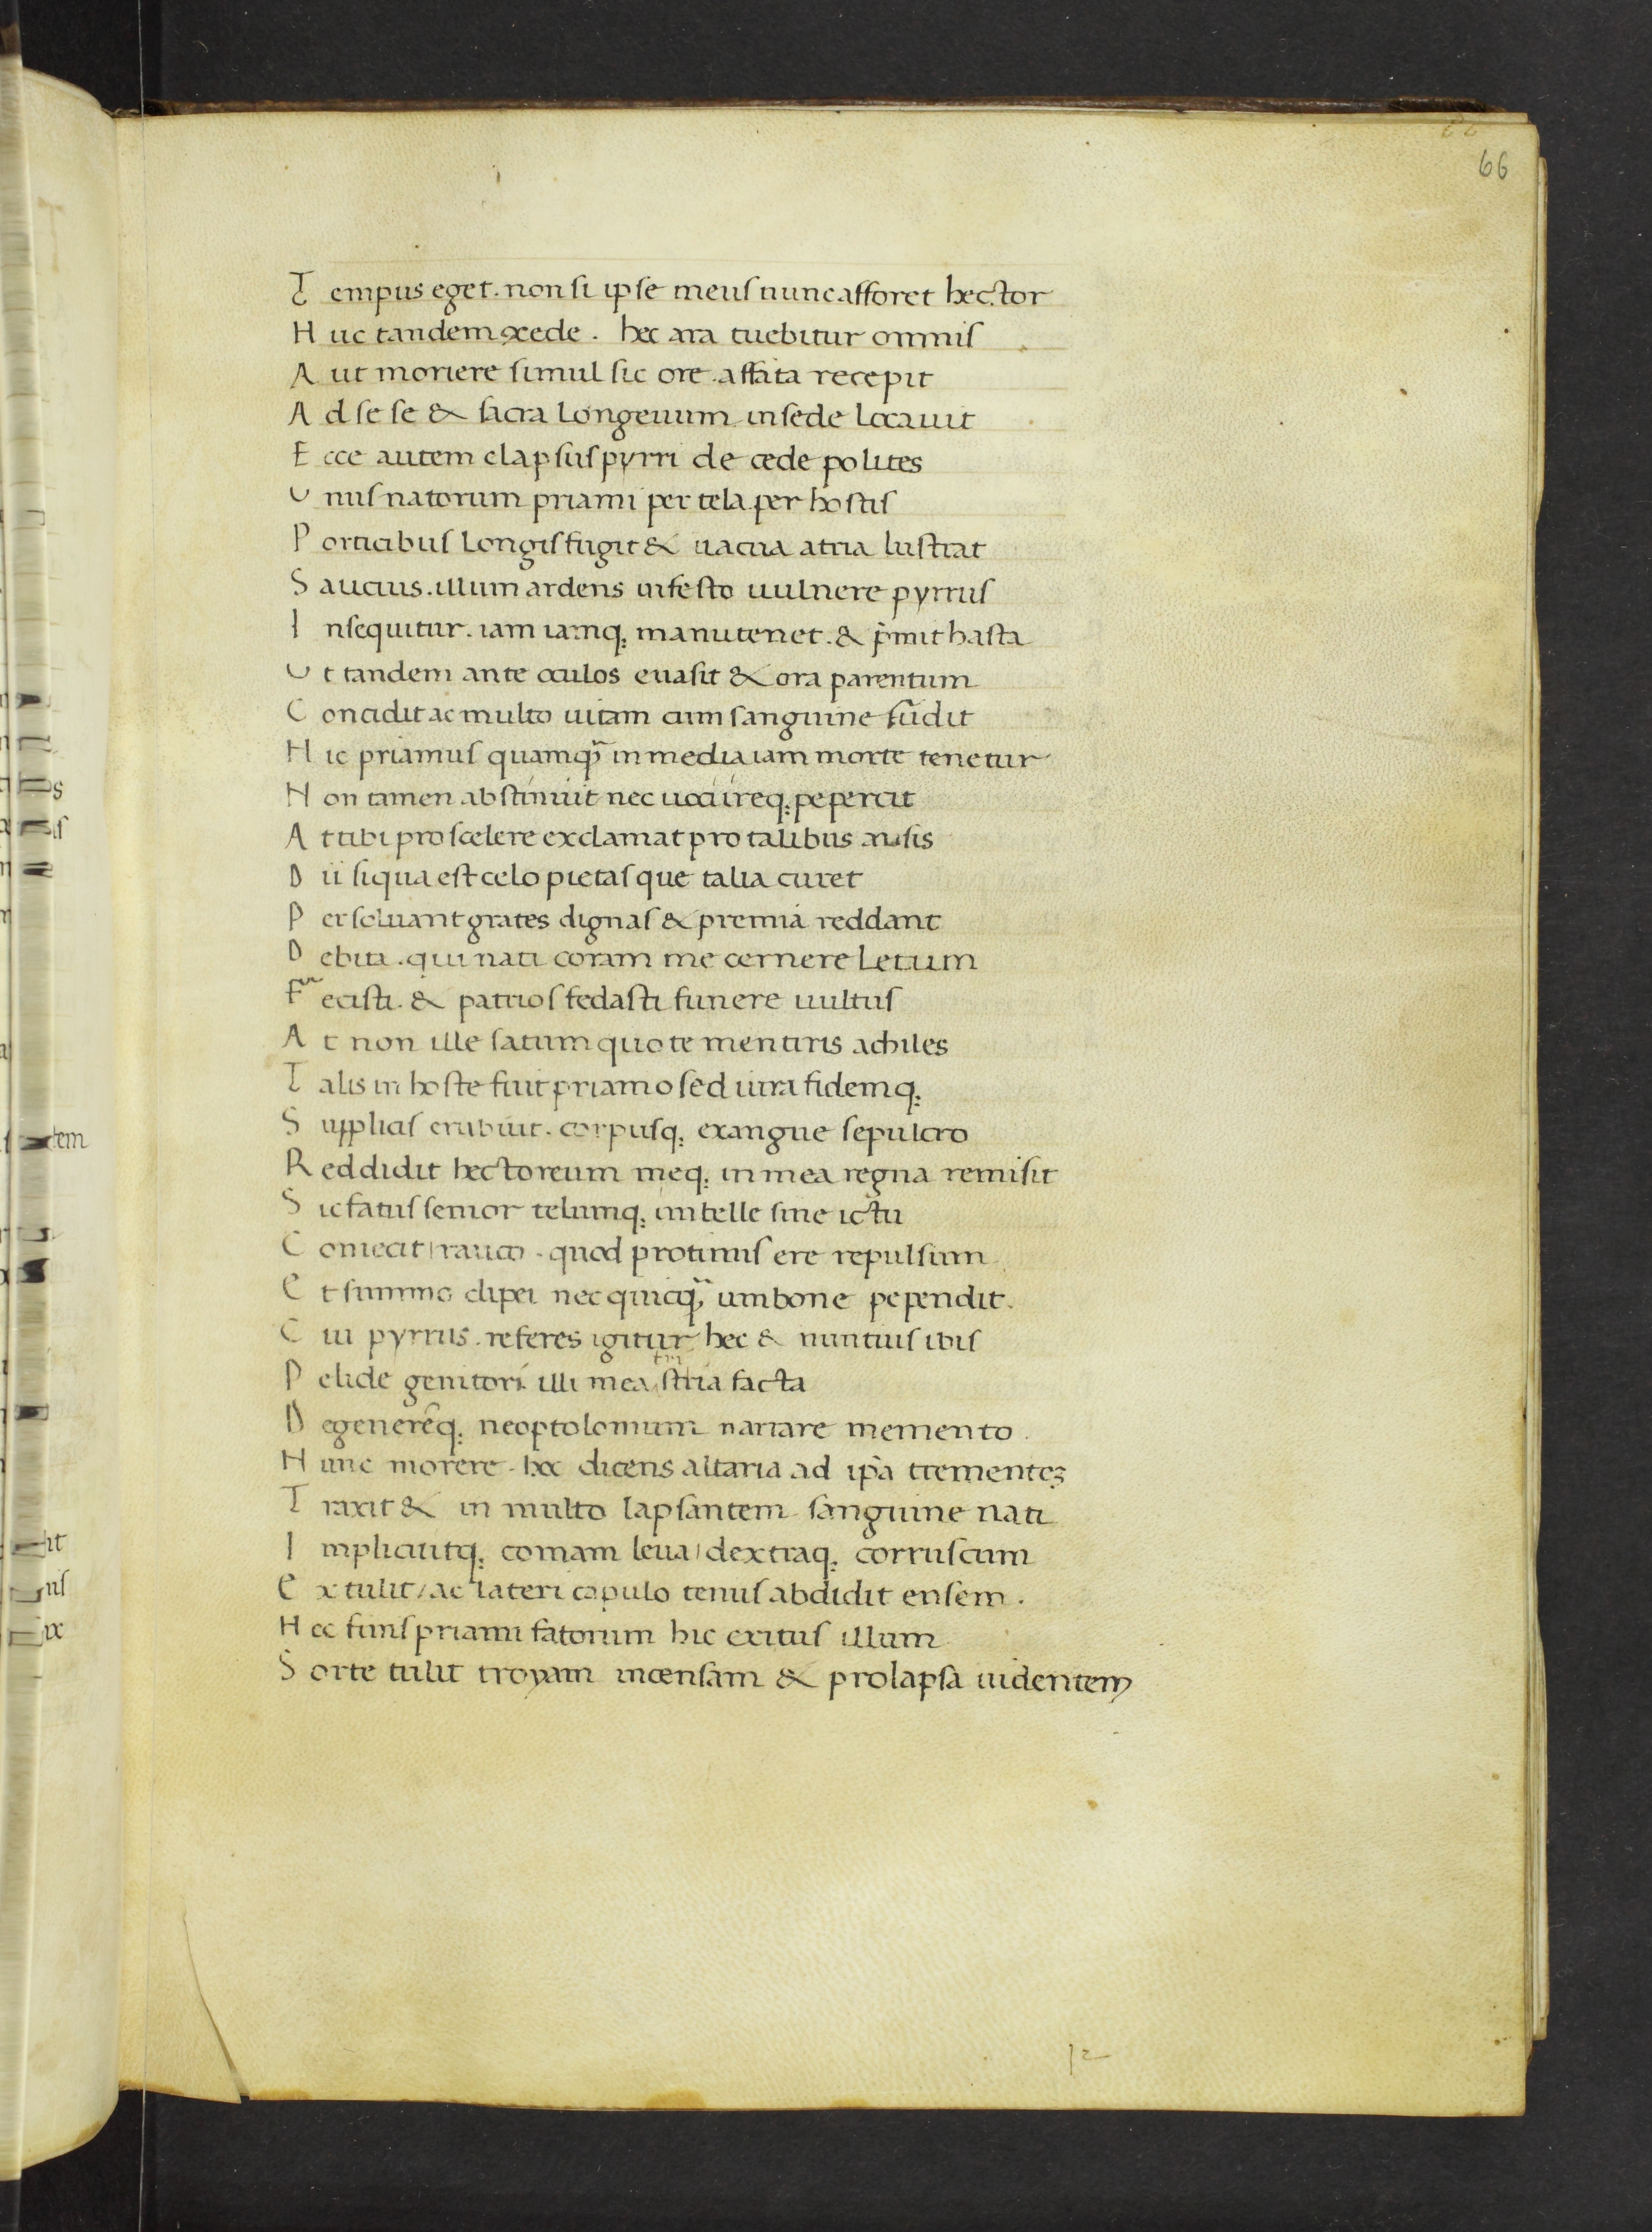 66
T empus eget. non si ipse meus nunc afforet hector
H uc tandem cȩcede. hec ara tuebitur omnis
A ut moriere simul sic ore. affata recepit
A d se se & sacra Longeuum in sede locauit
E cce autem elapsus pyrri de cede polites
U nus natorum priami per tela per hostis
P orticibus Longis fugit & uacua atria lustrat
S aucius. illum ardens infesto uulnere pyrrus
I nsequitur. iam iamq; manu tenet. & p̍mit hasta
U t tandem ante oculos euasit & ora parentum
C oncidit ac multo uitam cum sanguine fudit
H ic priamus quamq̃ in media iam morte tenetur
N on tamen abstinuit nec uoci ireq; pepercit
A t tibi pro scelere exclamat pro talibus ausis
D ii siqua est celo pietas que talia curet
P ersoluant grates dignas & premia reddant
D ebita. qui nati coram me cernere Letum
F ecisti. & patrios fedasti funere uultus
A t non ille satum quo te mentiris achiles
T alis in hoste fuit priamo sed iura fidemq;
S upplicis erubuit. corpusq; exangue sepulcro
R eddidit hectoreum meq; in mea regna remisit
S ic fatus senior telumq; imbelle sine ictu
C oniecit / rauco. quod protinus ere repulsum
E t summo clipei nec quicq̃ umbone pependit.
C ui pyrrus. referes igitur hec & nuntius ibis
P elide genitori. illi mea tr̃istia facta
D egenerẽq; neoptolomum narrare memento.
N unc morere. hoc dicens altaria ad ip̃a trementeʒ
T raxit & in multo lapsantem sanguine nati
I mplicuitq; comam leua / dextraq; corruscum
E xtulit / ac lateri capulo tenus abdidit ensem.
H ec finis priami fatorum hic exitus illum
S orte tulit troyam incensam & prolapsa uidentem
12